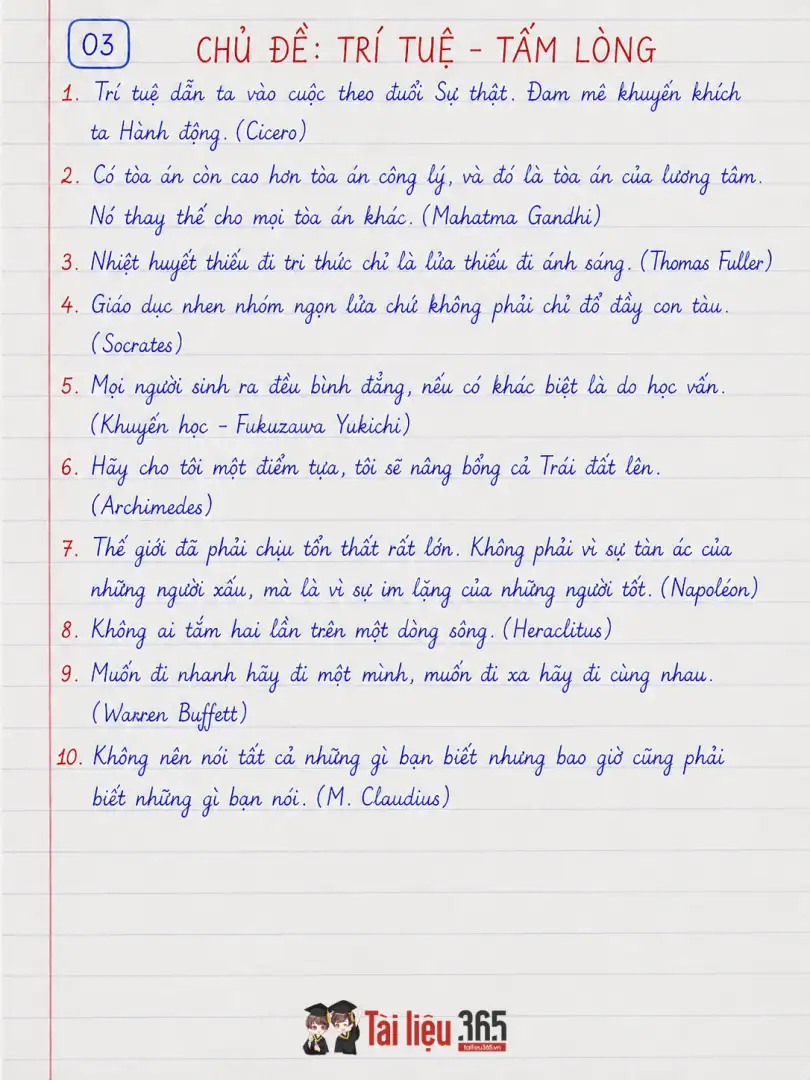 03
CHỦ ĐỀ: TRÍ TUỆ - TẤM LÒNG
1. Trí tuệ dẫn ta vào cuộc theo đuổi Sự thật. Đam mê khuyến khích
ta Hành động. (Cicero)
2. Có tòa án còn cao hơn tòa án công lý, và đó là tòa án của lương tâm.
Nó thay thế cho mọi tòa án khác. (Mahatma Gandhi)
3. Nhiệt huyết thiếu đi tri thức chỉ là lửa thiếu đi ánh sáng. (Thomas Fuller)
4. Giáo dục nhen nhóm ngọn lửa chứ không phải chỉ đổ đầy con tàu.
(Socrates)
5. Mọi người sinh ra đều bình đẳng, nếu có khác biệt là do học vấn.
(Khuyến học - Fukuzawa Yukichi)
6. Hãy cho tôi một điểm tựa, tôi sẽ nâng bổng cả Trái đất lên.
(Archimedes)
7. Thế giới đã phải chịu tổn thất rất lớn. Không phải vì sự tàn ác của
những người xấu, mà là vì sự im lặng của những người tốt. (Napoléon)
8. Không ai tắm hai lần trên một dòng sông. (Heraclitus)
9. Muốn đi nhanh hãy đi một mình, muốn đi xa hãy đi cùng nhau.
(Warren Buffett)
10. Không nên nói tất cả những gì bạn biết nhưng bao giờ cũng phải
biết những gì bạn nói. (M. Claudius)
Tài liệu 365
tailieu365.vn